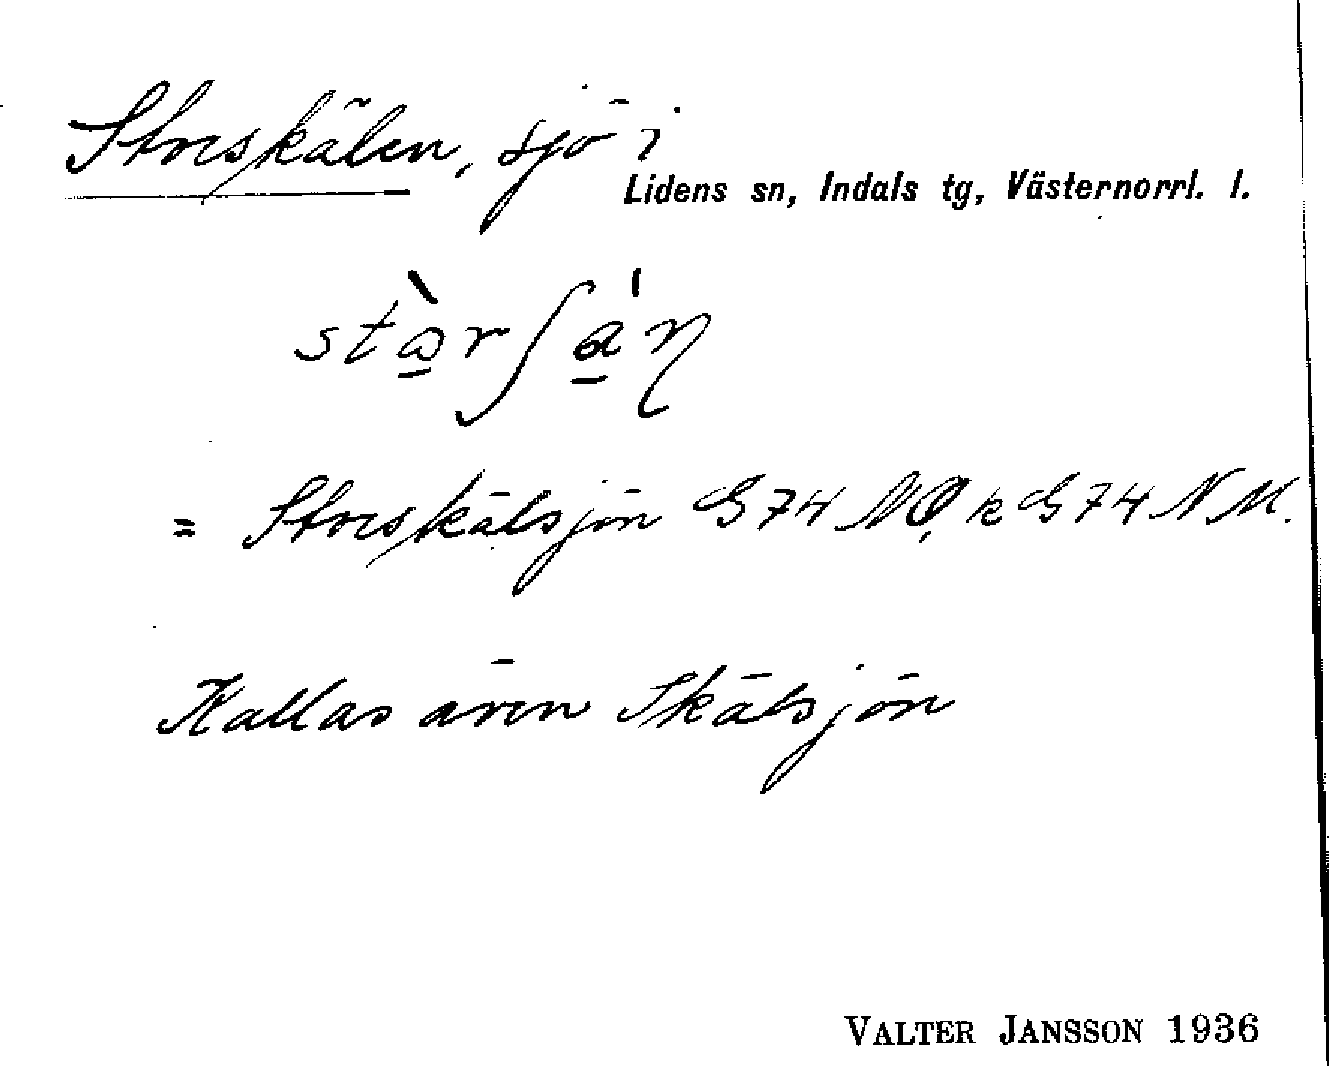 Storskälen, sjö i
Lidens sn, Indals tg, Västernorrl. l.
= Storskälsjön G74 NO, k G74 NM.
Kallas även Skälsjön
VALTER JANSSON 1936